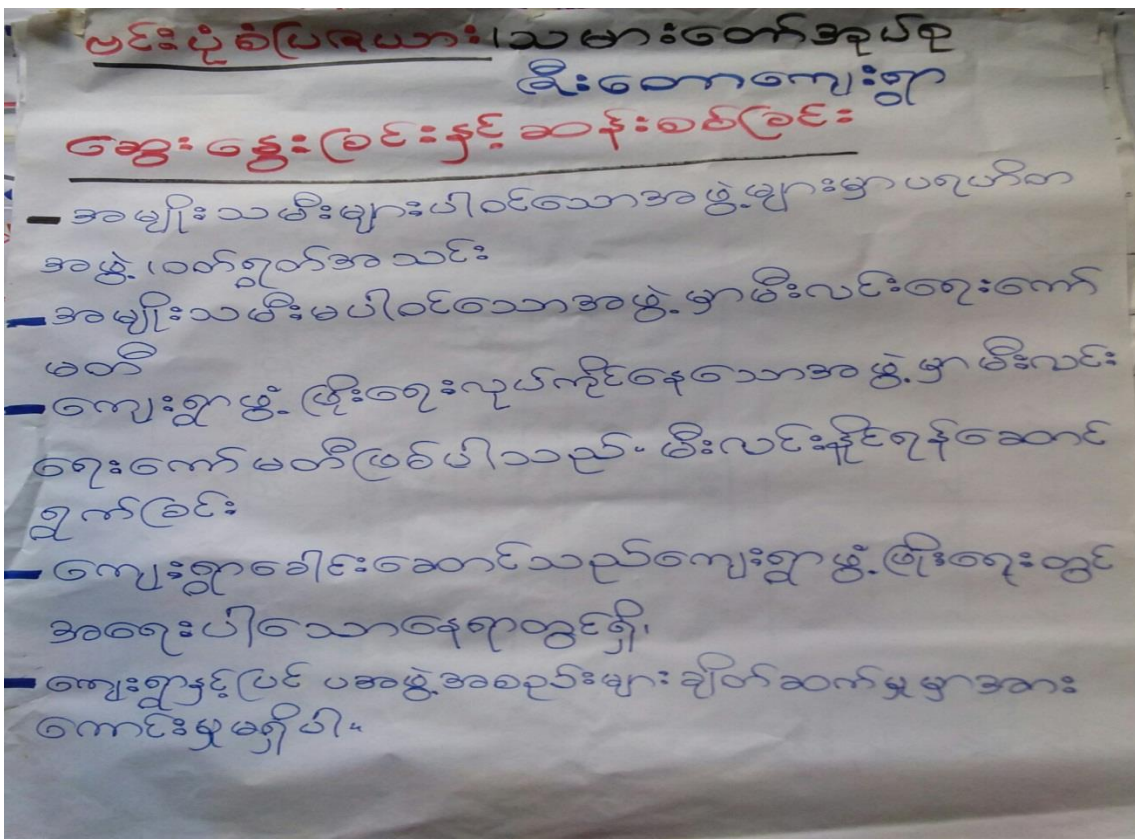 ဗင်းပုံစံပြဇယား၊သမားတော်အုပ်စု
ဆီးတောကျေးရွာ
ဆွေးနွေးခြင်းနှင့် ဆန်းစစ်ခြင်း
- အမျိုးသမီးများပါဝင်သောအဖွဲ့များမှာပရဟိတ
အဖွဲ့၊ဝတ်ရွတ်အသင်း
- အမျိုးသမီးမပါဝင်သောအဖွဲ့မှာမီးလင်းရေးကော်
မတီ
- ကျေးရွာဖွံ့ဖြိုးရေးလုပ်ကိုင်နေသောအဖွဲ့မှာ မီးလင်း
ရေးကော်မတီဖြစ်ပါသည်။ မီးလင်းနိုင်ရန်ဆောင်
ရွက်ခြင်း
- ကျေးရွာခေါင်းဆောင်သည်ကျေးရွာဖွံ့ဖြိုးရေးတွင်
အရေးပါသောနေရာတွင်ရှိ၊
- ကျေးရွာနှင့်ပြင် ပအဖွဲ့အစည်းများ ချိတ်ဆက်မှုမှာအား
ကောင်းမှုမရှိပါ။